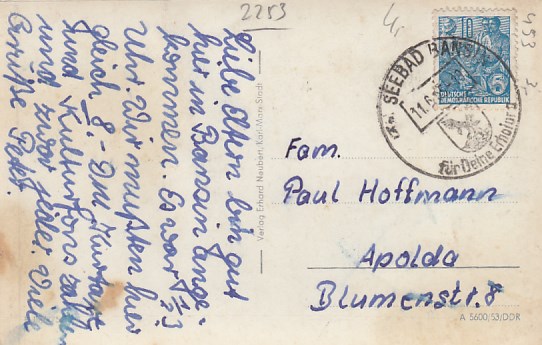 2253
Liebe Eltern bin gut
hier in Bansin ange-
kommen. Es war ½3
Uhr. Wir mußten hier
gleich 8.- DM Kurtaxe
und Kulturfons zahlen
und zwar jeder. Viele
Grüße Peter.
Verlag Erhard Neubert, Karl-Marx-Stadt
SEEBAD BANSIN
11.6.
für Deine Erholung
DEUTSCHE
DEMOKRATISCHE REPUBLIK
Fam.
Paul Hoffmann
Apolda
Blumenstr. 8
A 5600/53/DDR